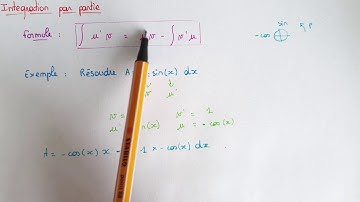 Intégration par partie
formule : ∫ u' v = v - ∫ v' u
sin
-cos
Exemple : Résoudre A sin(x) dx
v = v' = 1
u' (x) u = - cos(x)
A = - cos(x) x - 1 x - cos(x) dx